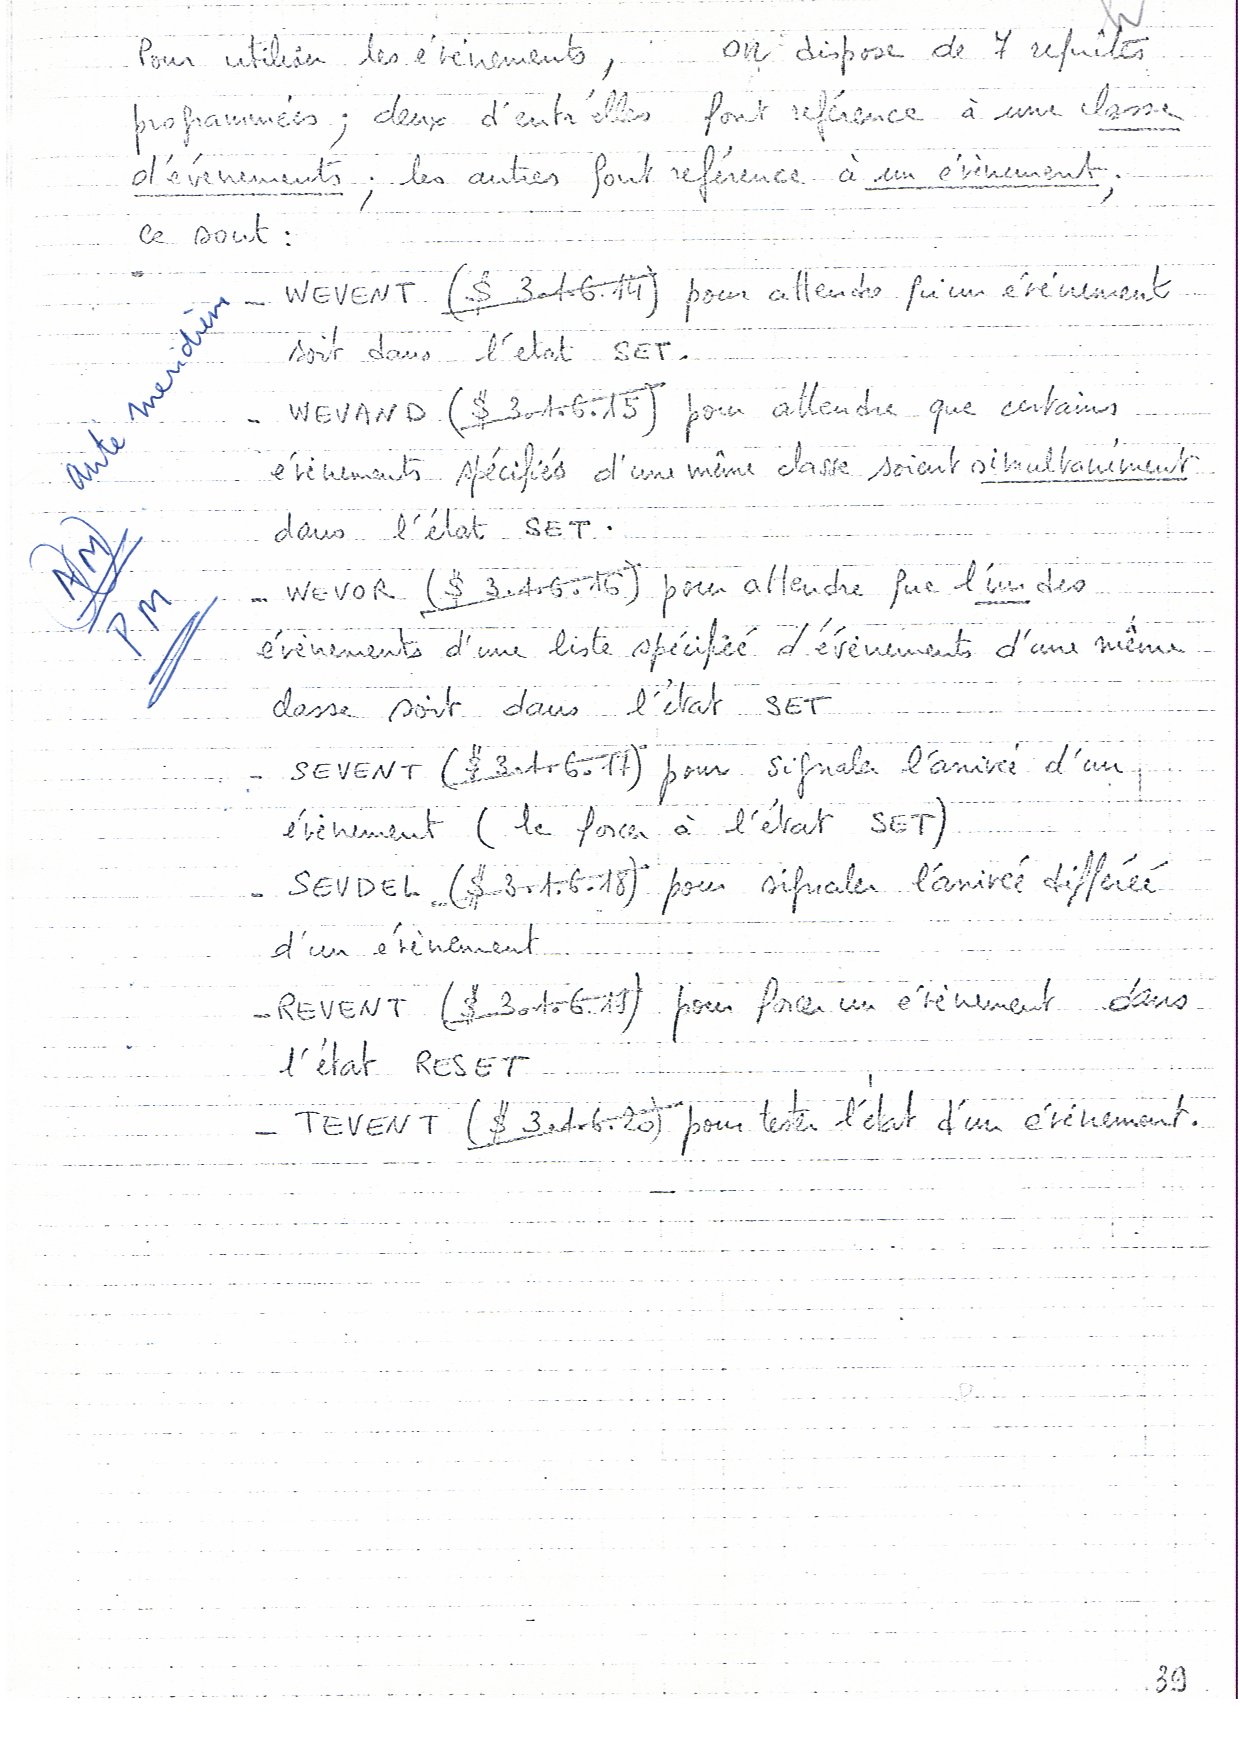 Pour utiliser les événements, on dispose de 7 requêtes
programmées ; deux d'entr'elles font reférence à une classe
d'événements ; les autres font reférence à un évènement ;
ce sont :
- WEVENT (§ 3.1.6.14) pour attendre qu'un événement
soit dans l'état SET.
- WEVAND (§ 3.1.6.15) pour attendre que certains
évènements spécifiés d'une même classe soient simultanément
dans l'état SET.
- WEVOR (§ 3.1.6.16) pour attendre que l'un des
évènements d'une liste spécifiée d'évènements d'une même
classe soit dans l'état SET
- SEVENT (§ 3.1.6.17) pour signaler l'arrivée d'un
évènement ( le forcer à l'état SET)
- SEVDEL (§ 3.1.6.18) pour signaler l'arrivée différée
d'un évènement
- REVENT (§ 3.1.6.19) pour forcer un évènement dans
l'état RESET
- TEVENT (§ 3.1.6.20) pour tester l'état d'un événement.
ante meridiem
AM
PM
39